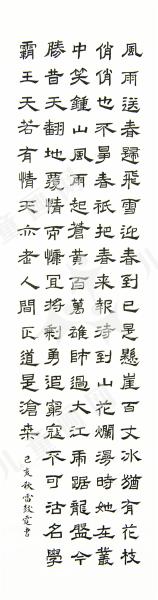 風雨送春歸飛雪迎春到已是懸崖百丈冰猶有花枝
俏俏也不爭春祇把春來報待到山花爛漫時她在叢
中笑鍾山風雨起蒼黃百萬雄師過大江虎踞龍盤今
勝昔天翻地覆慨而慷宜將剩勇追窮寇不可沽名學
霸王天若有情天亦老人間正道是滄桑
己亥秋雷書